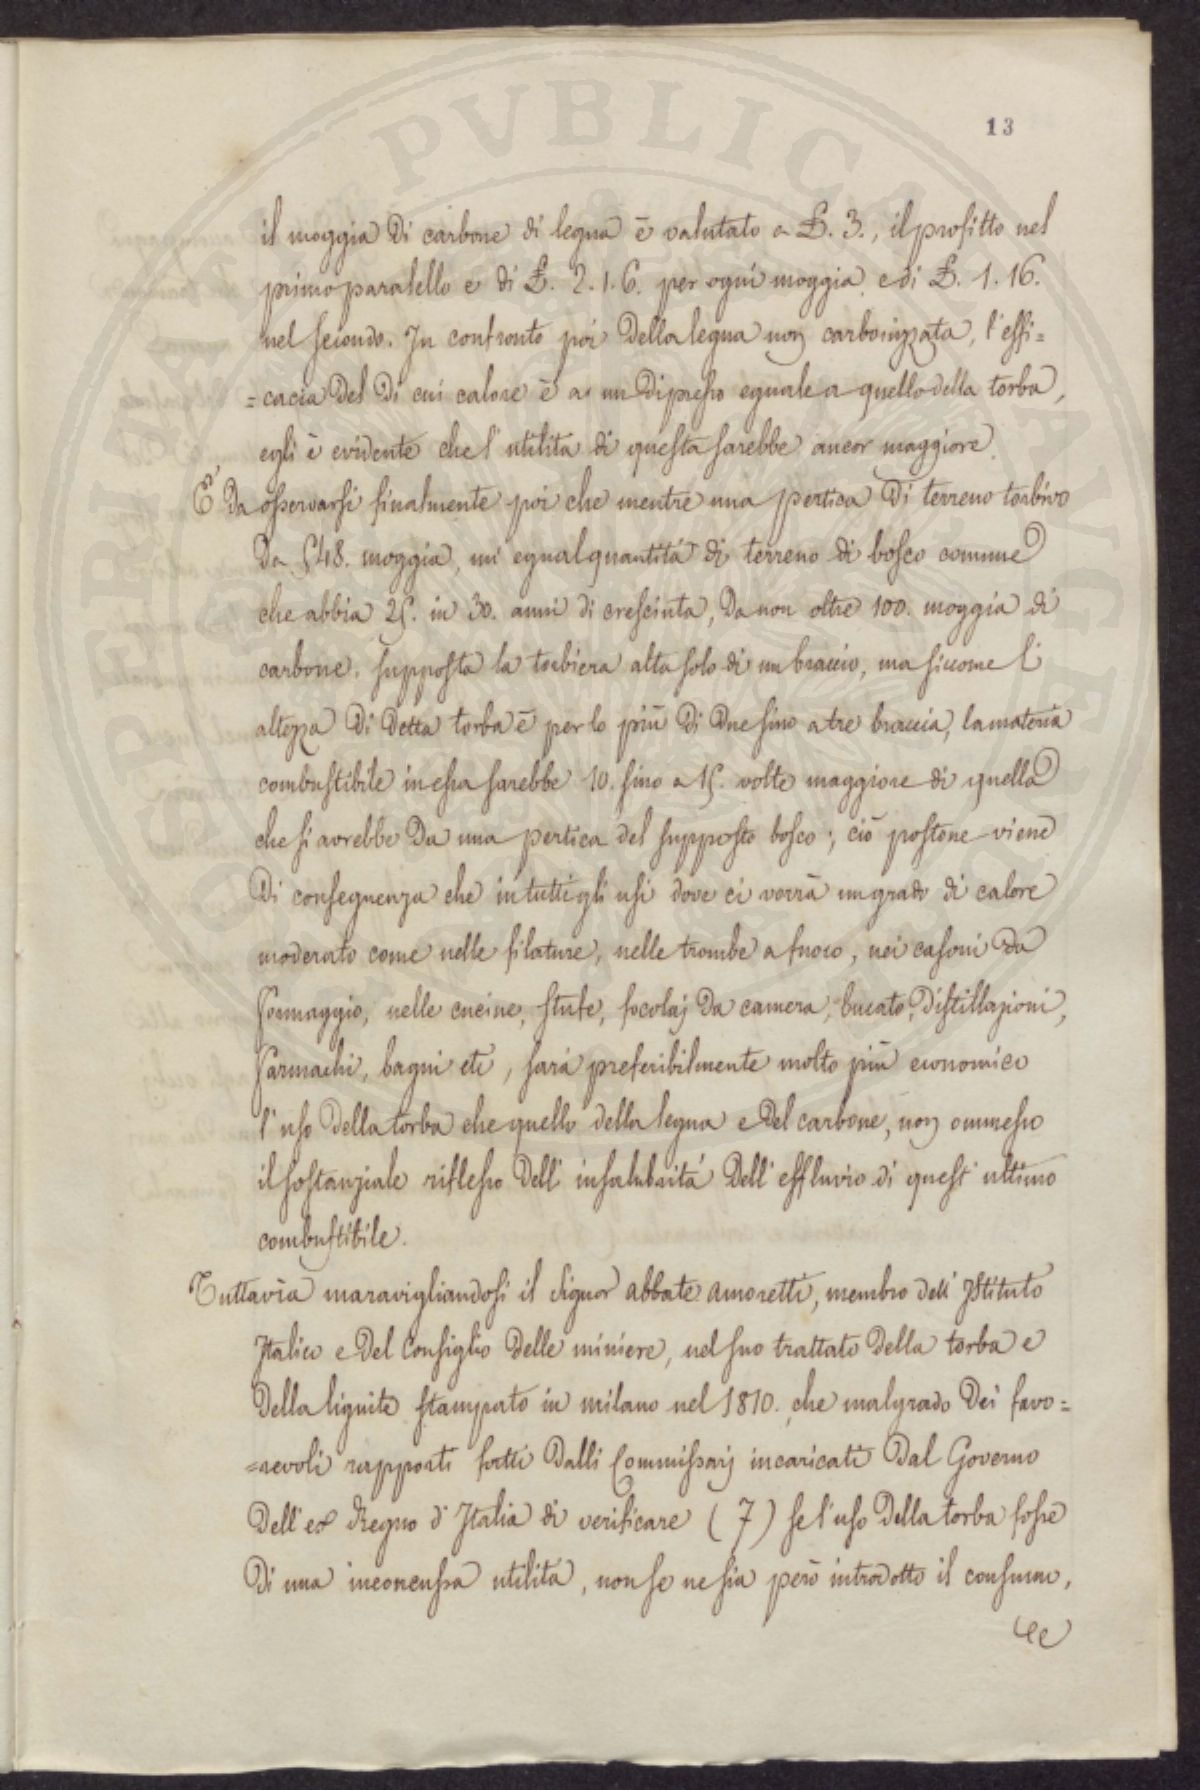 13
il moggia di carbone di legna è valutato a £. 3., il profitto nel
primo paralello e di £. 2. 1. 6. per ogni moggia e di £. 1. 16.
nel secondo. In confronto poi della legna non carbonizzata, l'effi=
=cacia del di cui calore è a un dipresso eguale a quello della torba,
egli è evidente che l'utilita di questa sarebbe ancor maggiore.
E' da osservarsi finalmente poi che mentre una pertica di terreno torbivo
da 548. moggia, un egual quantitá di terreno di bosco comune
che abbia 25. in 30. anni di cresciuta, da non oltre 100. moggia di
carbone. supposta la torbiera alta solo di un braccio, ma siccome l'
altezza di detta torba è per lo più di due sino a tre braccia, la materia
combustibile in essa sarebbe 10. sino a 15. volte maggiore di quella
che si avrebbe da una pertica del supposto bosco; ciò postone viene
di conseguenza che in tutti gli usi dove ci vorrà un grado di calore
moderato come nelle filature, nelle trombe a fuoco, nei casoni da
formaggio, nelle cucine, stufe, focolaj da camera, bucato, distillazioni,
farmachi, bagni etc, sará preferibilmente molto più economico
l'uso della torba che quello della legna e del carbone, non ommesso
il sostanziale riflesso dell' insalubritá dell' effluvio di quest' ultimo
combustibile.
Tuttavia maravigliandosi il signor abbate amoretti, membro dell' Istituto
Italico e del Consiglio delle miniere, nel suo trattato della torba e
della lignite stampato in milano nel 1810. che malgrado dei favo=
=revoli rapporti fatti dalli Commissarj incaricati dal Governo
dell'ex Regno d'Italia di verificare (7) se l'uso della torba fosse
di una inconcussa utilità, non se ne sia però introdotto il consumo,